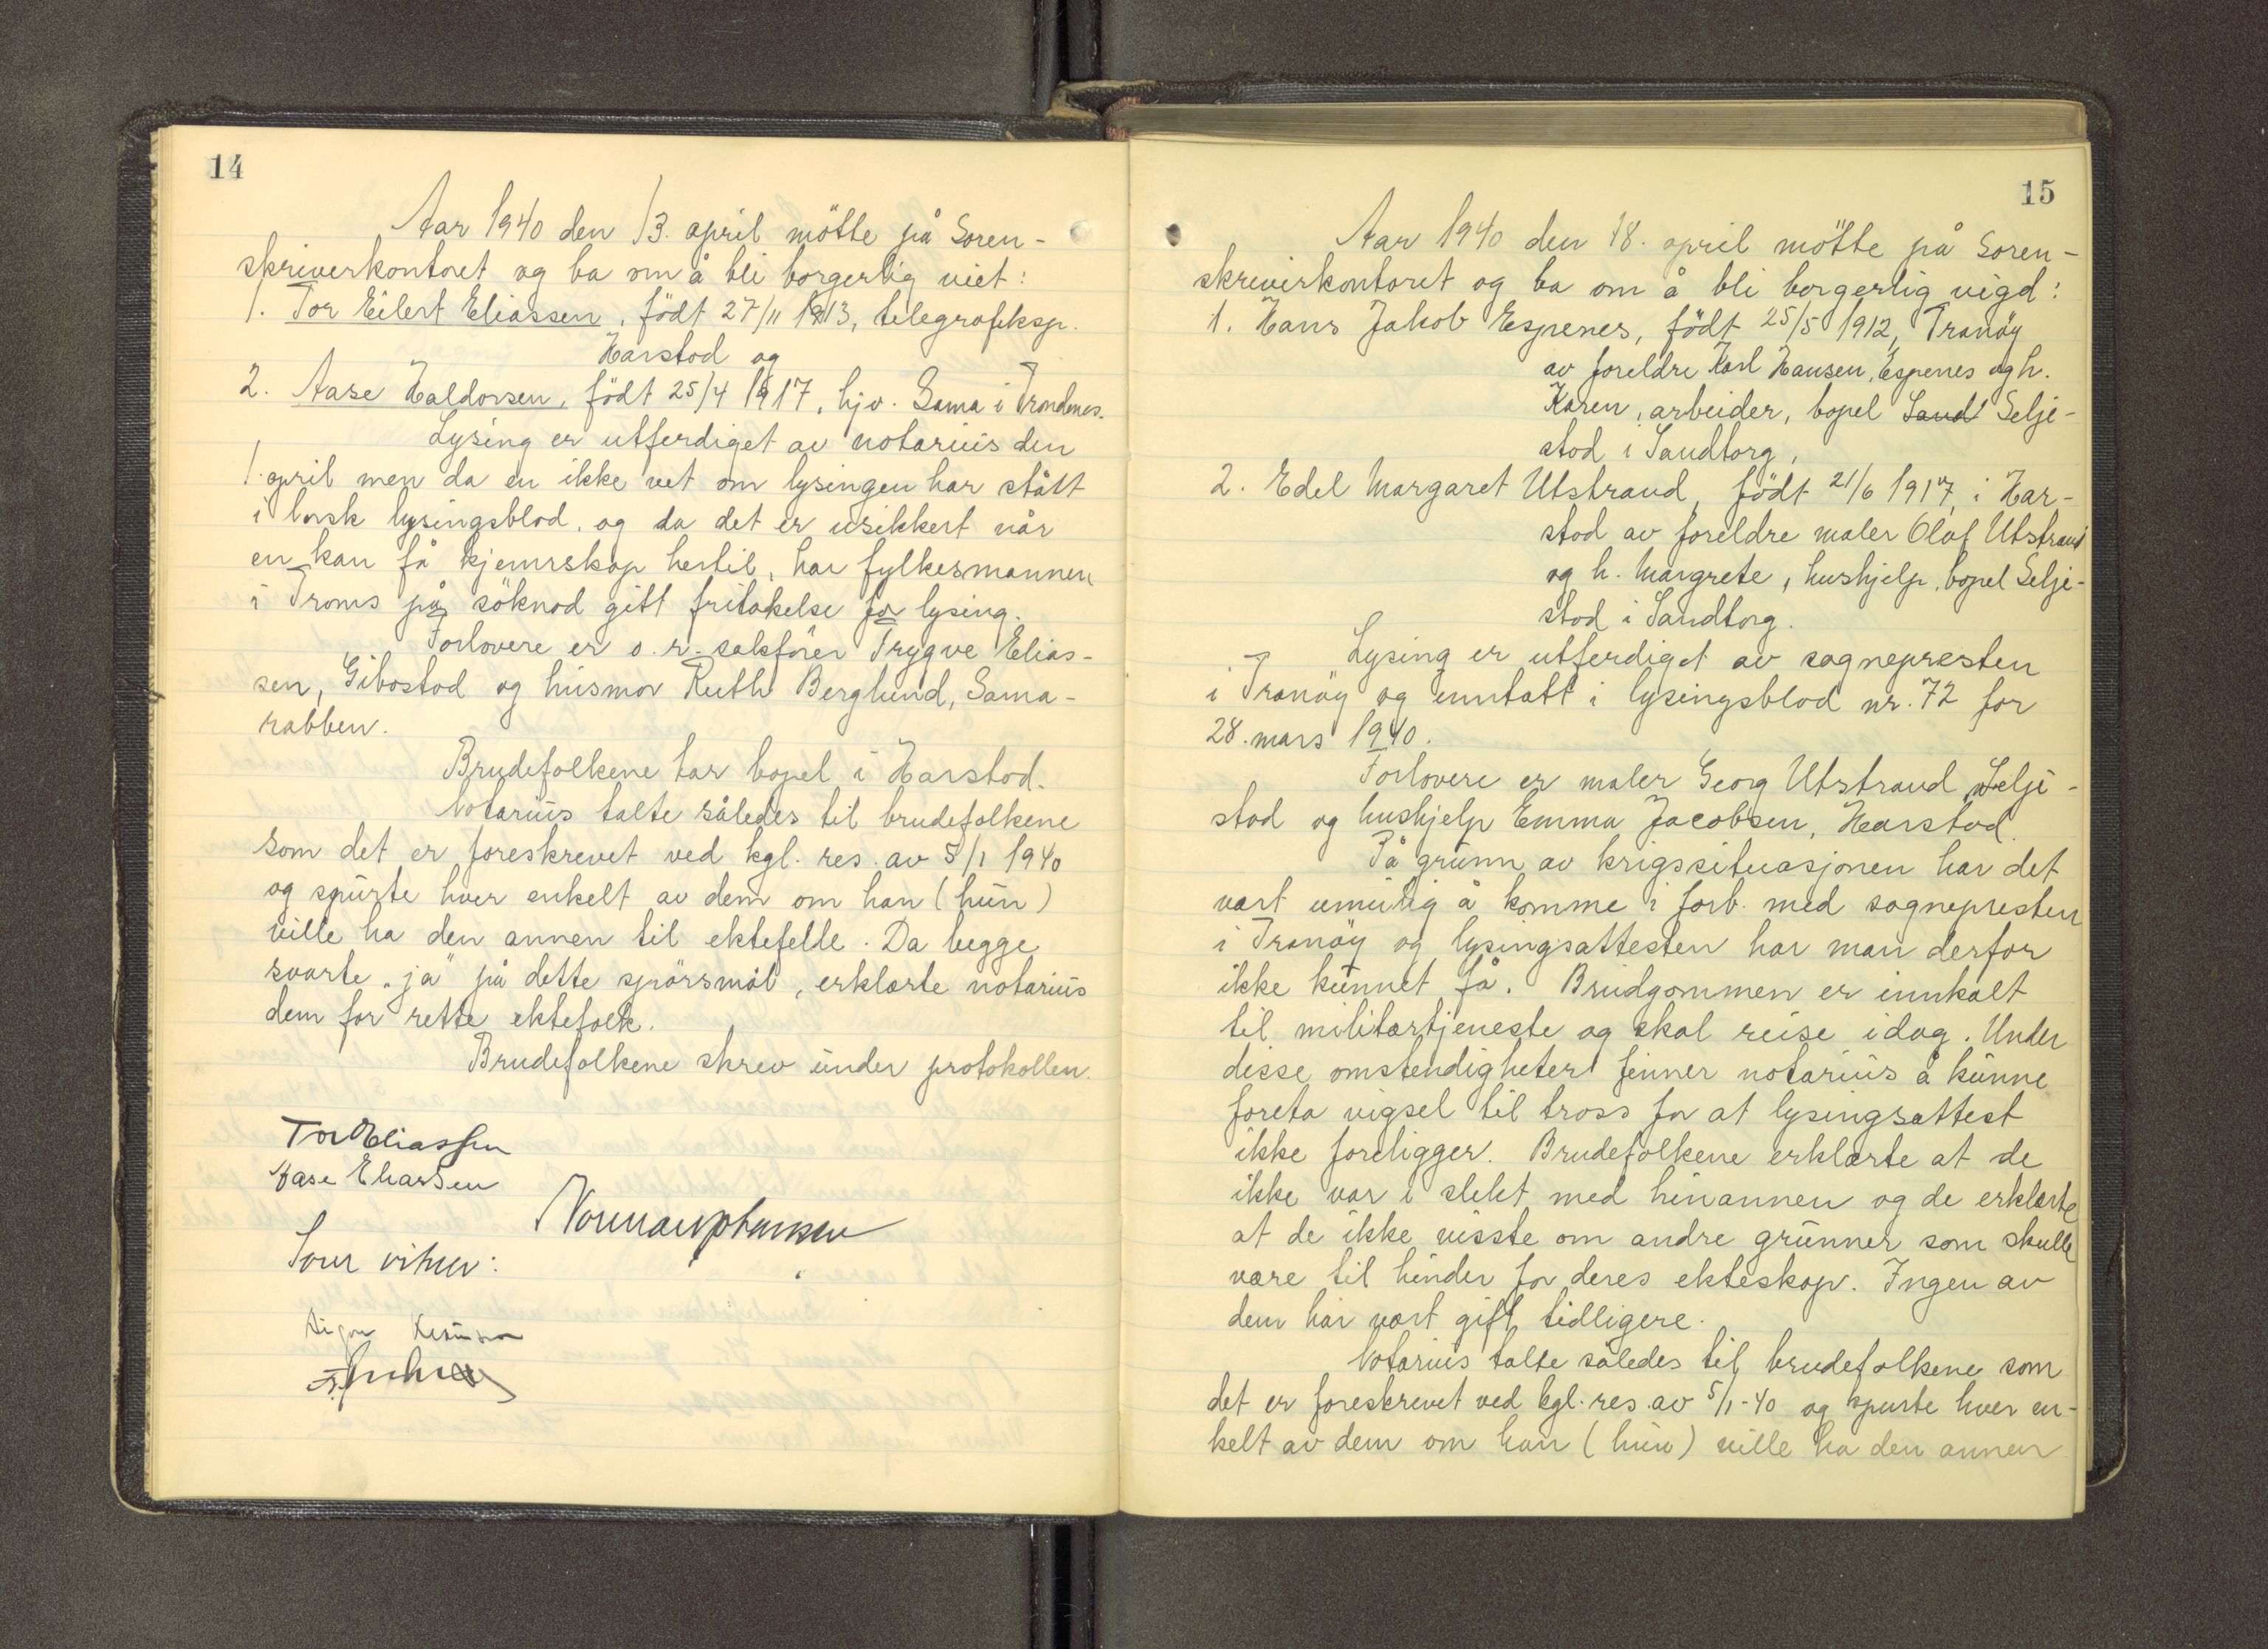 14
Aar 1940 den 13. april mötte på Soren-
skriverkontoret og ba om å bli borgerlig viet:
1. Tor Eilert Eliassen, födt 27/11 1913, telegrafeksp.
Harstad og
2. Aase Haldorsen, födt 25/4 1917, hjv. Sama i Trondenes.
Lysing er utferdiget av notarius den
1. april men da en ikke vet om lysingen har stått
i norsk lysingsblad, og da det er usikkert når
en kan få kjennskap hertil, har fylkesmannen
i Troms på söknad gitt fritakelse for lysing.
Forlovere er o. r. sakförer Trygve Elias-
sen, Gibostad og husmor Ruth Berglund, Sama-
rabben.
Brudefolkene har bopel i Harstad.
Notarius talte således til brudefolkene
som det er foreskrevet ved kgl. res. av 5/1 1940
og spurte hver enkelt av dem om han (hun)
ville ha den annen til ektefelle. Da begge
svarte "ja" på dette spörsmål, erklærte notarius
dem for rette ektefolk.
Brudefolkene skrev under protokollen.
Tor Eliassen
Aase Eliassen
Norman Johansen
Som vitner:
15
Aar 1940 den 18. april mötte på Soren-
skriverkontoret og ba om å bli borgerlig vigd:
1. Hans Jakob Espenes, födt 25/5 1912, Tranöy
av foreldre Karl Hansen, Espenes og h.
Karen, arbeider, bopel Sand Selje-
stad i Sandtorg,
2. Edel Margaret Utstrand, födt 21/6 1917, i Har-
stad av foreldre maler Olaf Utstrand
og h. Margrete, hushjelp, bopel Selje-
stad i Sandtorg.
Lysing er utferdiget av sognepresten
i Tranöy og inntatt i lysingsblad nr. 72 for
28. mars 1940.
Forlovere er maler Georg Utstrand, Selje-
stad og hushjelp Emma Jacobsen, Harstad.
På grunn av krigssituasjonen har det
vært umulig å komme i forb. med sognepresten
i Tranöy og lysingsattesten har man derfor
ikke kunnet få. Brudgommen er innkalt
til militærtjeneste og skal reise idag. Under
disse omstendigheter finner notarius å kunne
foreta vigsel til tross for at lysingsattest
ikke foreligger. Brudefolkene erklærte at de
ikke var i slekt med hinannen og de erklærte
at de ikke visste om andre grunner som skulle
være til hinder for deres ekteskap. Ingen av
dem har vært gift tidligere.
Notarius talte således til brudefolkene som
det er foreskrevet ved kgl. res. av 5/1-40 og spurte hver en-
kelt av dem om han (hun) ville ha den annen